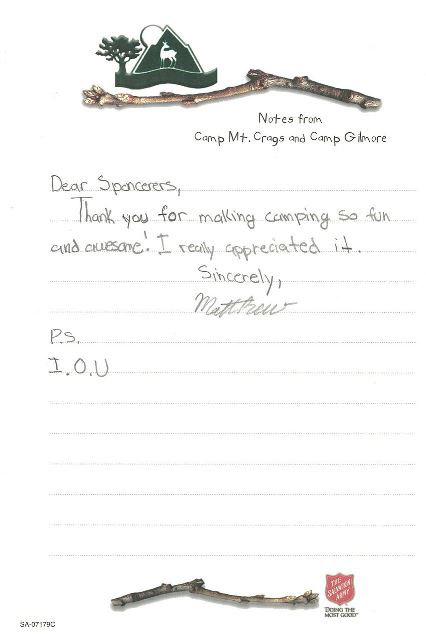 Notes from
Camp Mt. Crags and Camp Gilmore
Dear Sponcerers,
Thank you for making camping so fun
and awesome! I really appreciated it.
Sincerely,
Matthew
P.S.
I.O.U
THE
SALVATION
ARMY
DOING THE
MOST GOOD™
SA-07179C